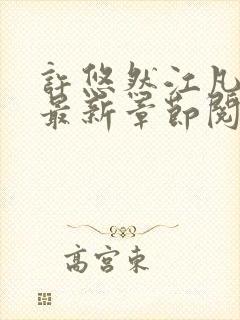 許悠然江凡
最新章節閱
高宮東